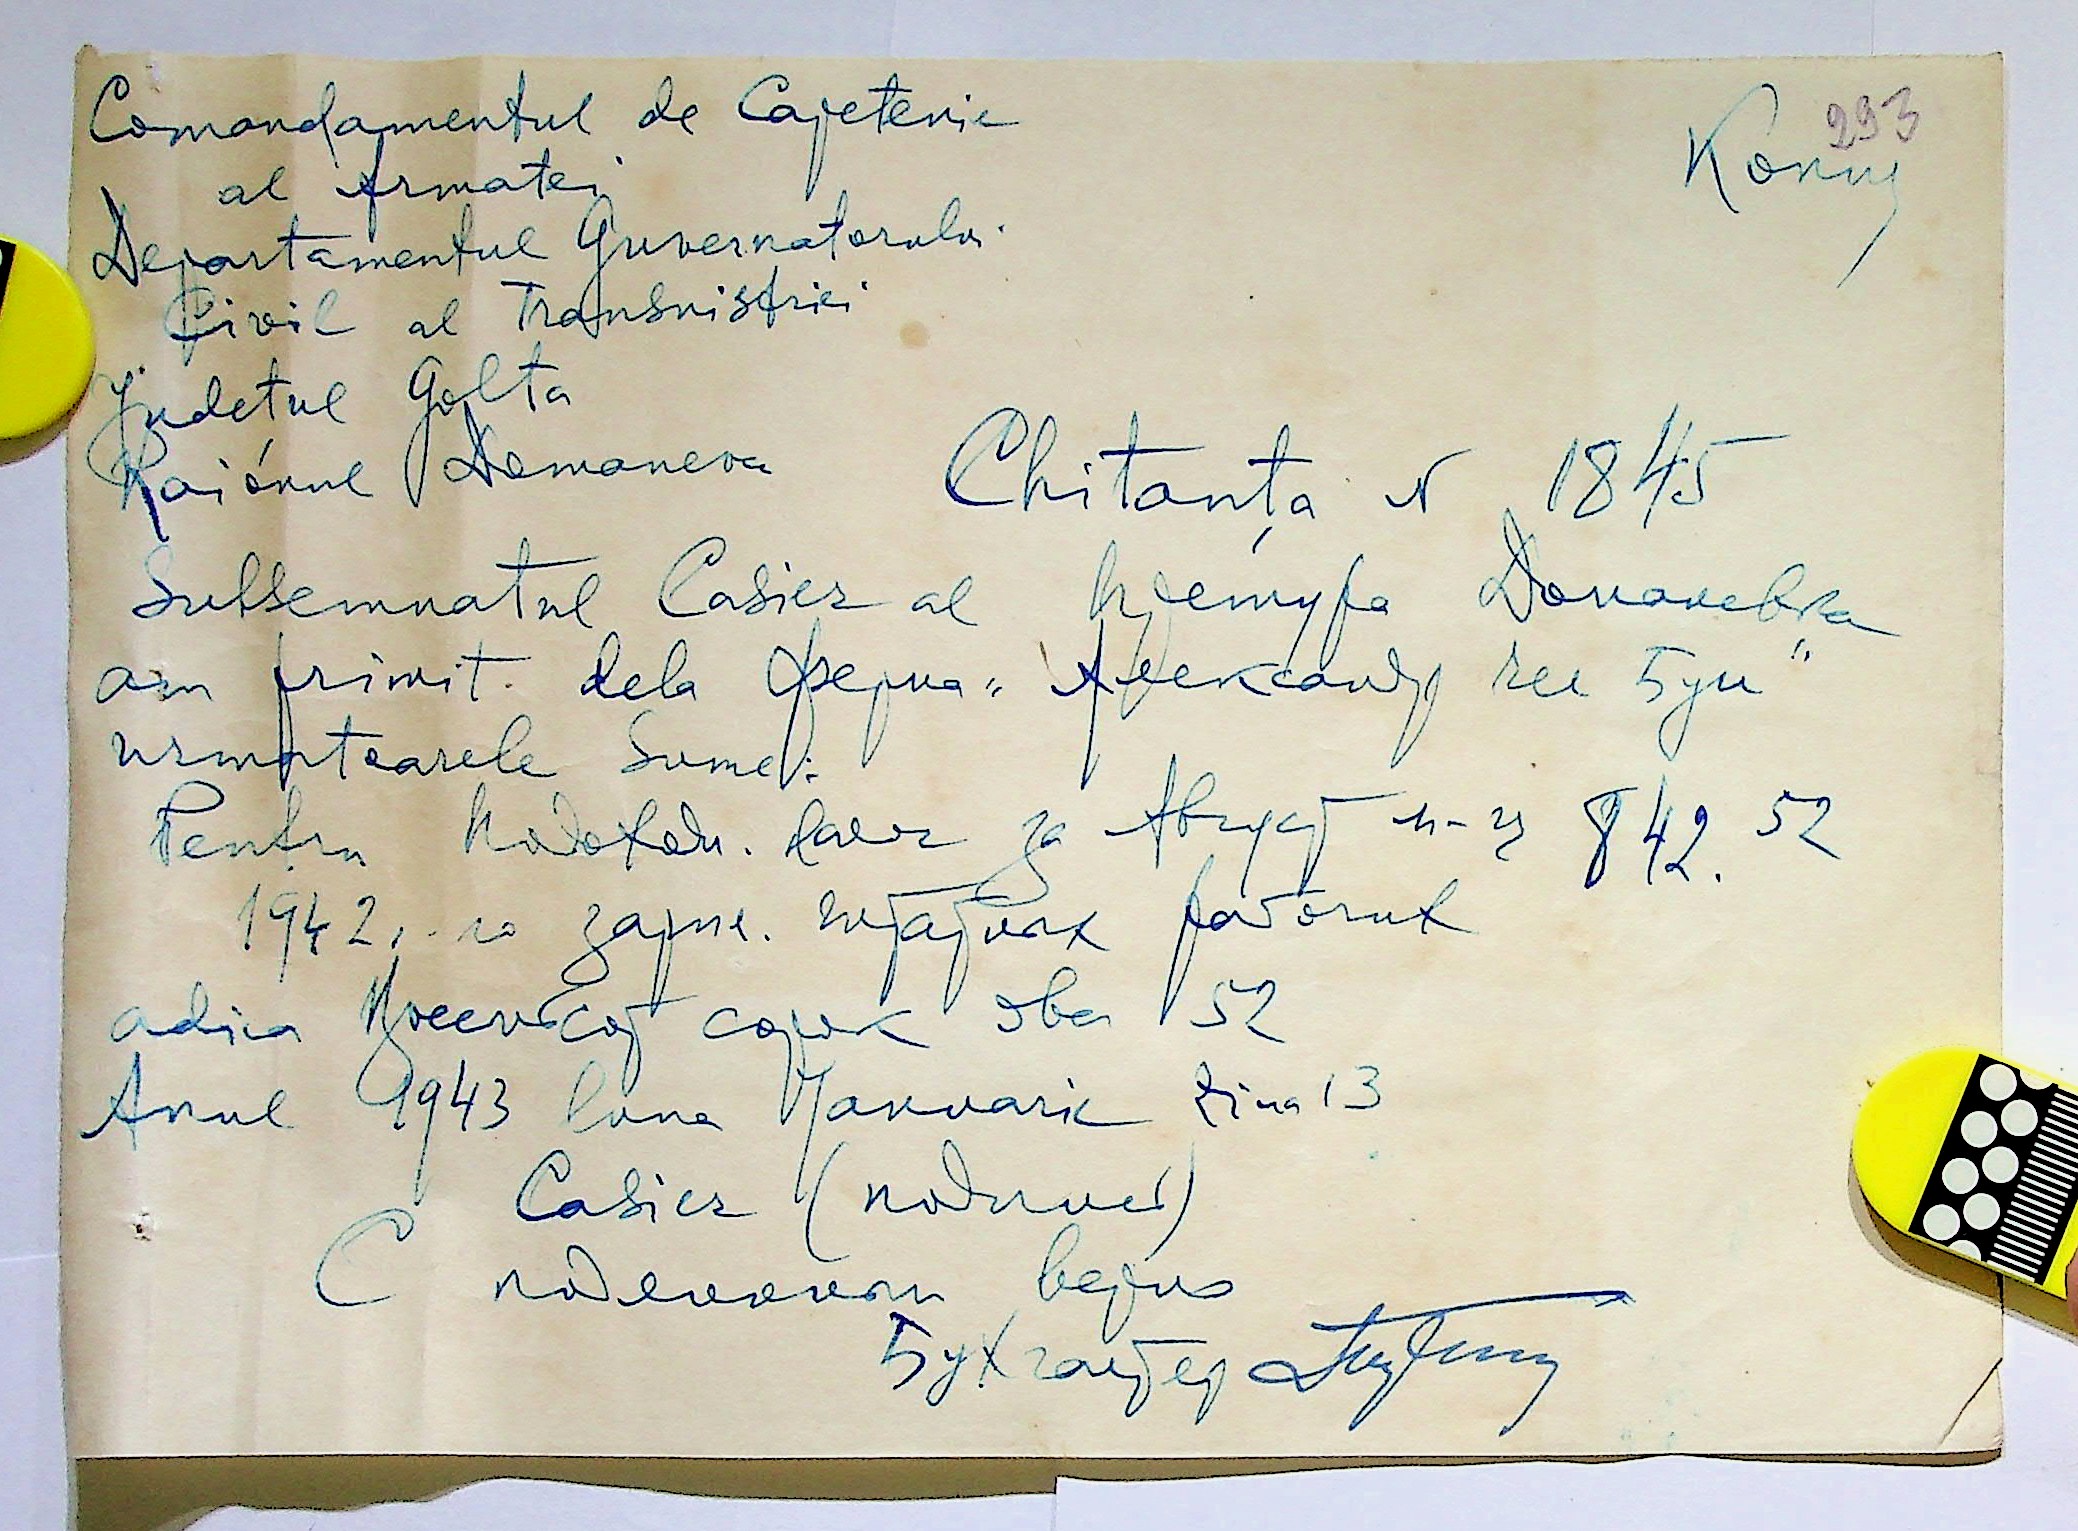 293
Копия
Comandamentul de Capetenie
al Armatei
Departamentul Guvernatorului
Civil al Transnistriei
Judetul Golta
Raionul Domaneva
Chitanța N 1845
Subsemnatul Casier al претура Доманевка
am primit dela Ферма „Александр чел Бун"
urmatoarele Sume:
Pentru подоходн. налог за Август м-ц 842.52
1942. по зарпл. штатных рабочих
adica Восемьсот сорок два 52
Anul 1943 luna Januarie ziua 13
Casier (подписи)
С подлинным верно
Бухгалтер